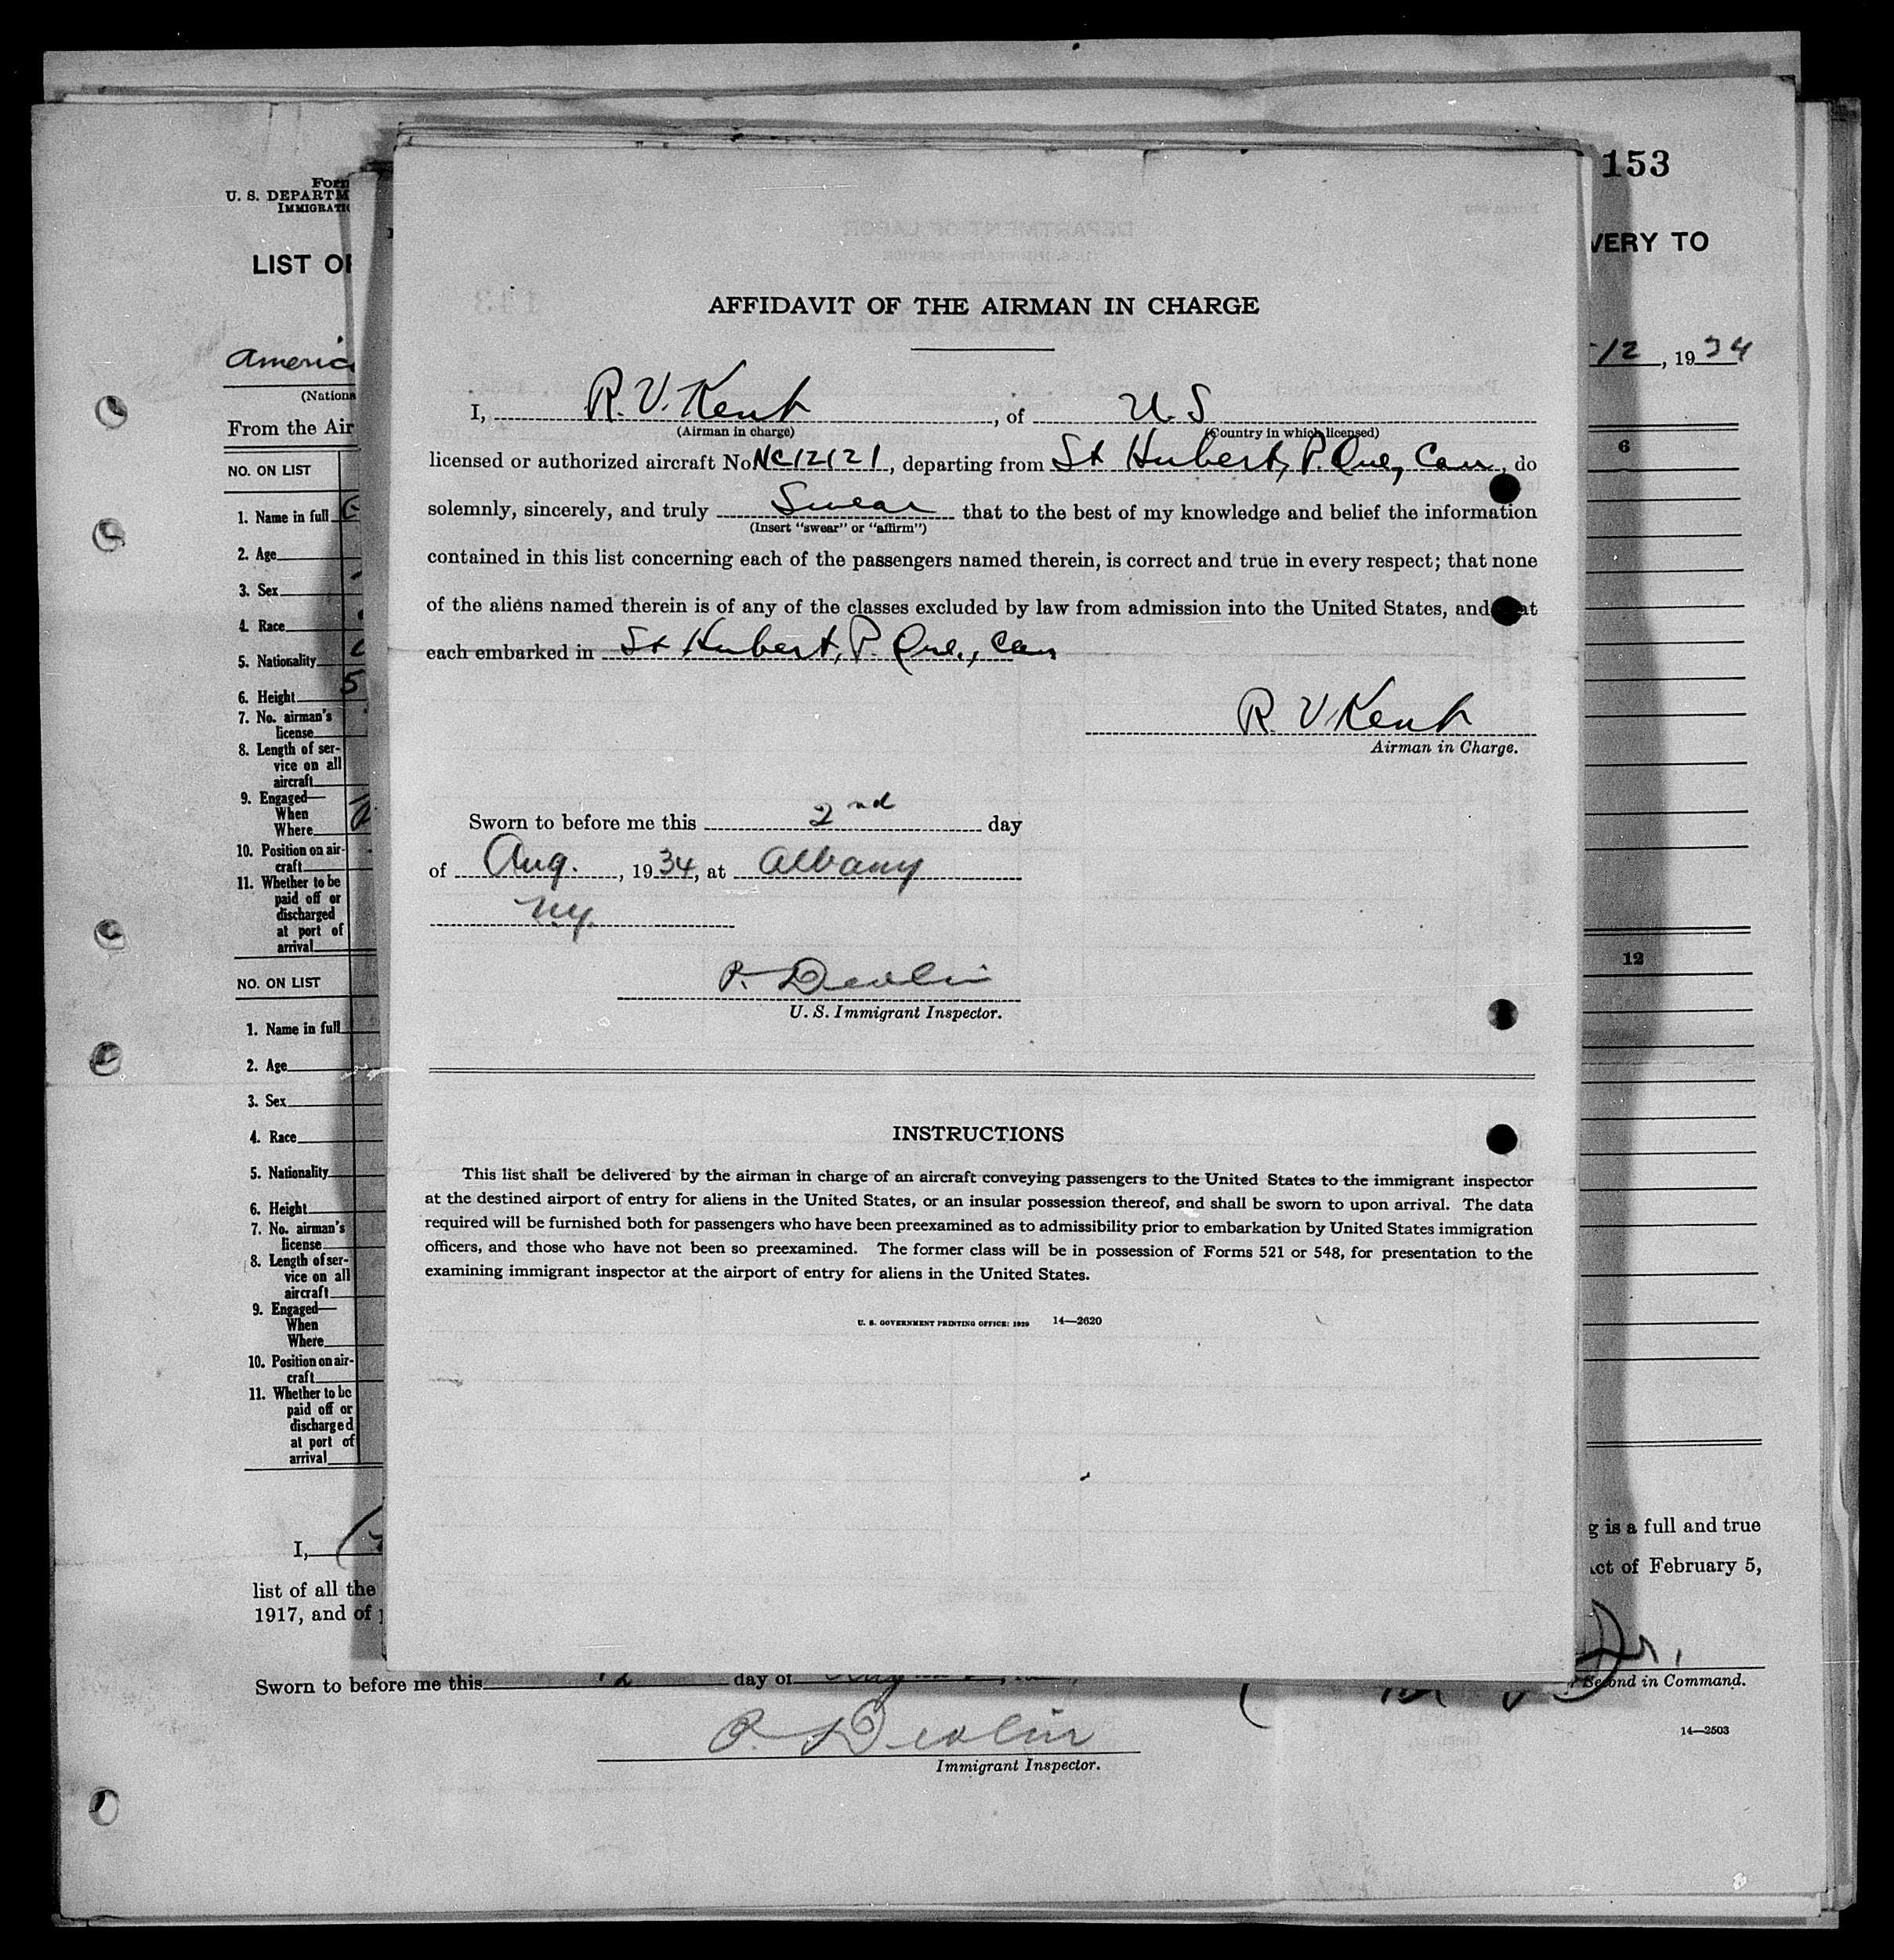 153
Form
U. S. DEPARTM
IMMIGRATI
LIST OF
VERY TO
America
12, 1934
(Nationa
From the Air
NO. ON LIST
6
1. Name in full
2. Age
3. Sex
4. Race
5. Nationality
6. Height 5
7. No. airman's
license
8. Length of ser-
vice on all
aircraft
9. Engaged—
When
Where
10. Position on air-
craft
11. Whether to be
paid off or
discharged
at port of
arrival
NO. ON LIST
12
1. Name in full
2. Age
3. Sex
4. Race
5. Nationality
6. Height
7. No. airman's
license
8. Length of ser-
vice on all
aircraft
9. Engaged—
When
Where
10. Position on air-
craft
11. Whether to be
paid off or
discharged
at port of
arrival
AFFIDAVIT OF THE AIRMAN IN CHARGE
I, R. V. Kent, of U. S
(Airman in charge) (Country in which licensed)
licensed or authorized aircraft No. NC12121, departing from St Hubert, P. Que, Can, do
solemnly, sincerely, and truly Swear that to the best of my knowledge and belief the information
(Insert "swear" or "affirm")
contained in this list concerning each of the passengers named therein, is correct and true in every respect; that none
of the aliens named therein is of any of the classes excluded by law from admission into the United States, and that
each embarked in St Hubert, P. Que., Can
R. V Kent
Airman in Charge.
Sworn to before me this 2nd day
of Aug., 1934, at Albany
NY.
P. Devlin
U. S. Immigrant Inspector.
INSTRUCTIONS
This list shall be delivered by the airman in charge of an aircraft conveying passengers to the United States to the immigrant inspector
at the destined airport of entry for aliens in the United States, or an insular possession thereof, and shall be sworn to upon arrival. The data
required will be furnished both for passengers who have been preexamined as to admissibility prior to embarkation by United States immigration
officers, and those who have not been so preexamined. The former class will be in possession of Forms 521 or 548, for presentation to the
examining immigrant inspector at the airport of entry for aliens in the United States.
U. S. GOVERNMENT PRINTING OFFICE: 1929 14—2620
I,
g is a full and true
list of all the
ct of February 5,
1917, and of
Jr.
Sworn to before me this 12 day of August
Second in Command.
P. Devlin
14—2503
Immigrant Inspector.